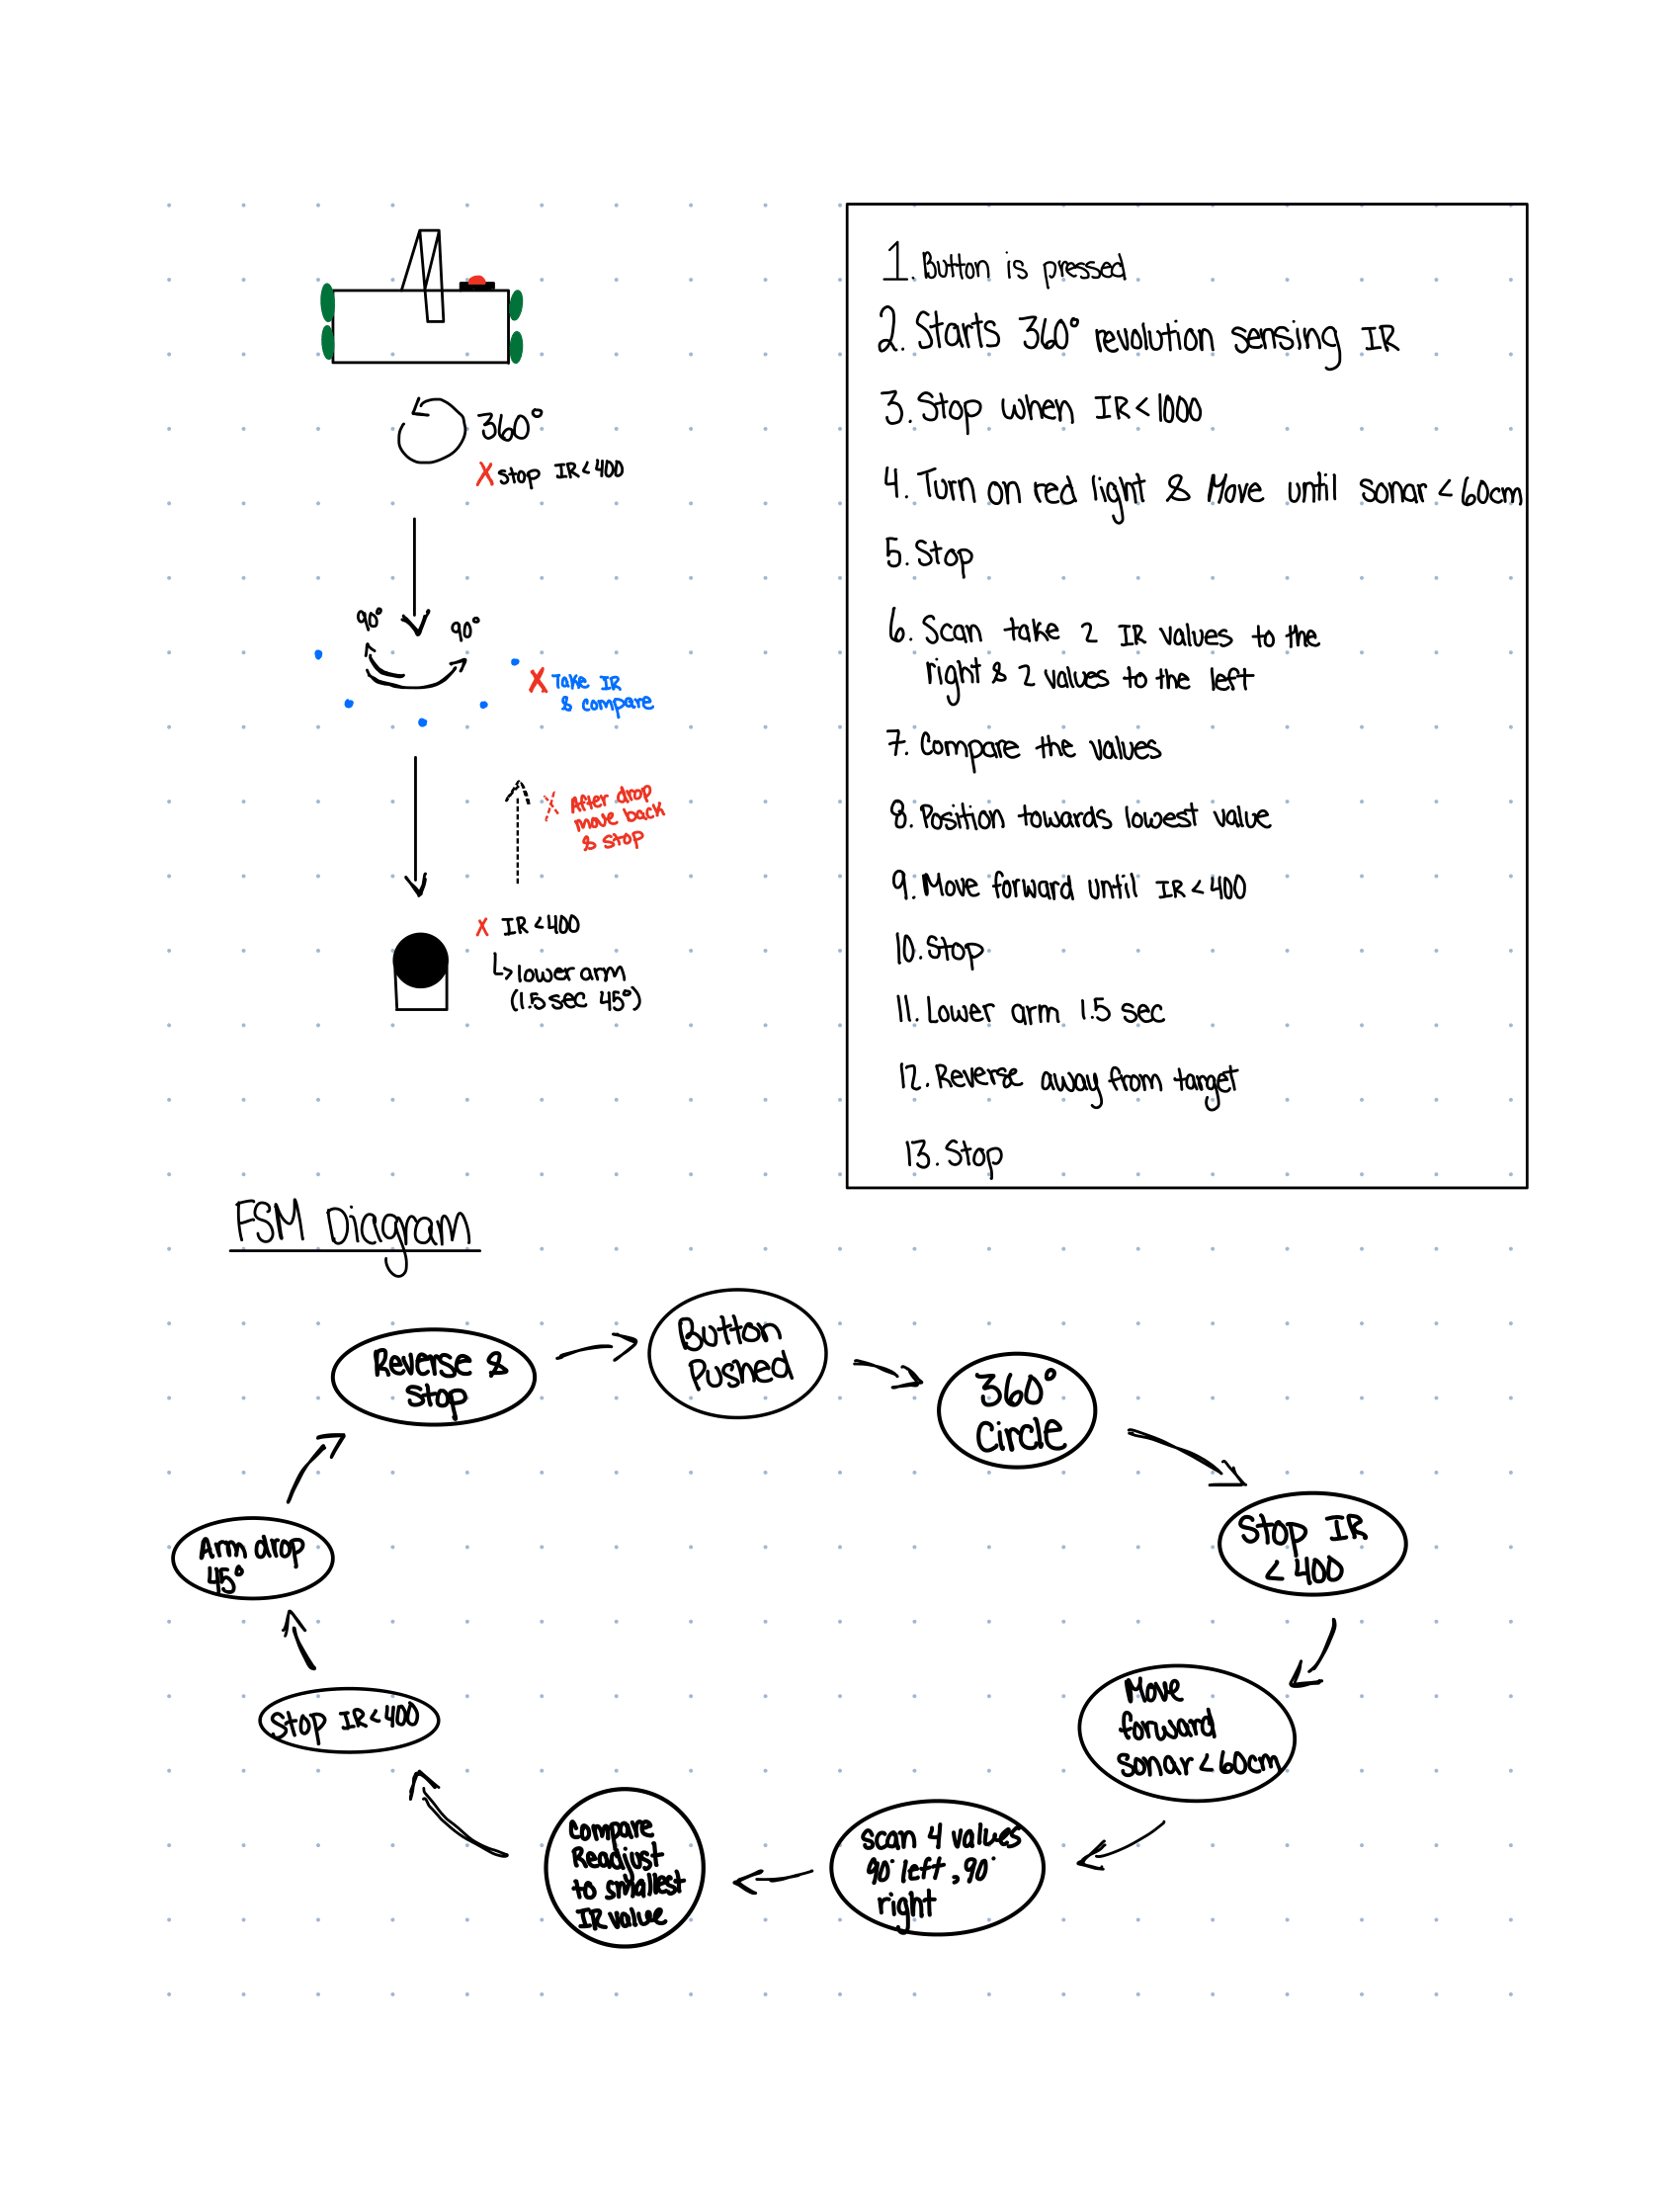 360°
X stop IR < 400
90°
90°
X Take IR
& compare
X After drop
move back
& stop
X IR < 400
↳ lower arm
(1.5 sec 45°)
1. Button is pressed
2. Starts 360° revolution sensing IR
3. Stop when IR < 1000
4. Turn on red light & Move until sonar < 60cm
5. Stop
6. Scan take 2 IR values to the
right & 2 values to the left
7. Compare the values
8. Position towards lowest value
9. Move forward until IR < 400
10. Stop
11. Lower arm 1.5 sec
12. Reverse away from target
13. Stop
FSM Diagram
Button
Pushed
360°
Circle
Stop IR
< 400
Move
forward
sonar < 60cm
scan 4 values
90° left, 90°
right
compare
Readjust
to smallest
IR value
Stop IR < 400
Arm drop
45°
Reverse &
stop